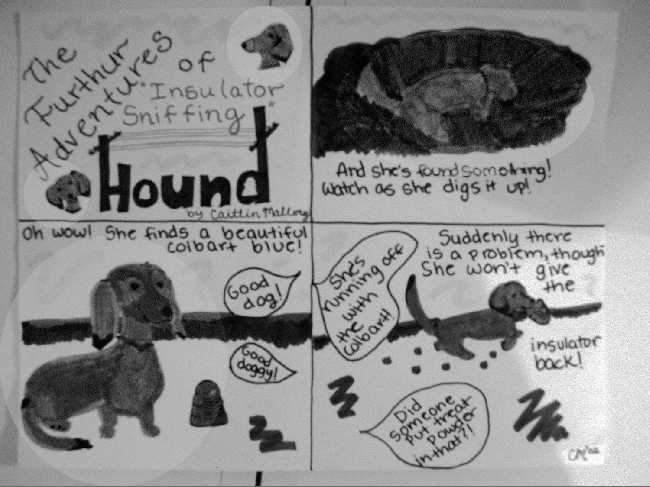 The
Furthur
Adventures
of
"Insulator
Sniffing"
Hound
by Caitlin Mallory
And she's found something!
Watch as she digs it up!
Oh wow! She finds a beautiful
colbart blue!
Good
dog!
Good
doggy!
She's
running off
with
the
colbart!
Suddenly there
is a problem, though
She won't give
the
insulator
back!
Did
someone
put treat
powder
in that?!